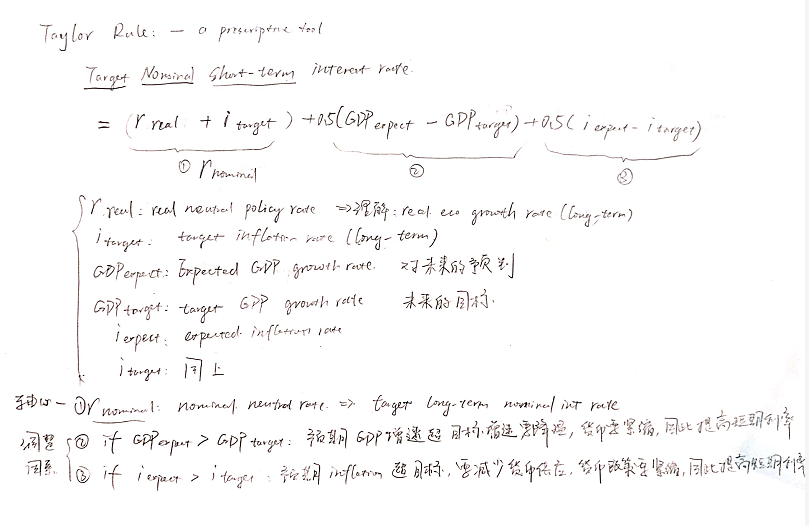 Taylor Rule: — a prescriptive tool
Target Nominal Short-term interest rate.
= (r real + i target) + 0.5(GDP expect − GDP target) + 0.5(i expect − i target)
① r nominal ② ③
r real: real neutral policy rate => 理解: real eco growth rate (long-term)
i target: target inflation rate (long-term)
GDP expect: Expected GDP growth rate. 对未来的预测
GDP target: target GDP growth rate 未来的目标.
i expect: expected inflation rate
i target: 同上
① r nominal: nominal neutral rate => target long-term nominal int rate
调整因素 ② if GDP expect > GDP target: 预期GDP增速超目标增速要降温, 货币要紧缩, 因此提高短期利率
③ if i expect > i target: 预期inflation超目标, 要减少货币供应, 货币政策要紧缩, 因此提高短期利率